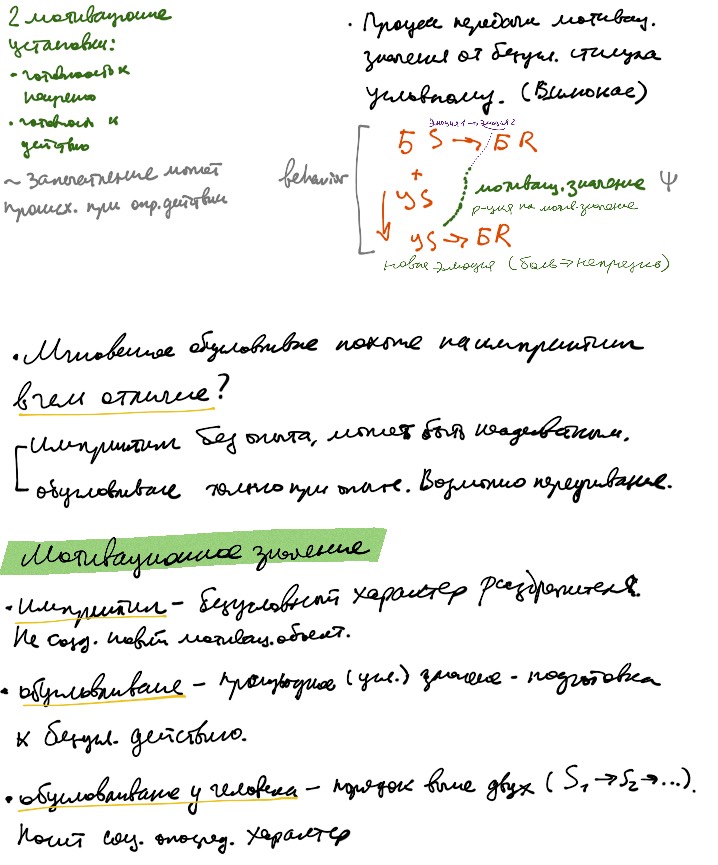 2 мотивационные
установки:
• готовность к
• готовность к
действию
~ Запечатление может
происх. при опр. действии
• Процесс передачи мотивац.
значения от безусл. стимула
условному. (Вилюнас)
эмоция 1 → эмоция 2
behavior
Б S → Б R
+
УS
мотивац. значение Ψ
р-ция на мотив. значение
УS → БR
новая эмоция (боль →)
• Мгновенное обусловливание похоже на импринтинг
в чем отличие?
Импринтинг без опыта, может быть неадекватным.
обусловливание только при опыте. Возможно переучивание.
Мотивационное значение
• Импринтинг – безусловный характер раздражителя.
Не созд. новый мотивац. объект.
• обусловливание – (усл.) значение – подготовка
к безусл. действию.
• обусловливание у человека – порядок выше двух (S₁ → S₂ → ...).
Носит соц. опосред. характер